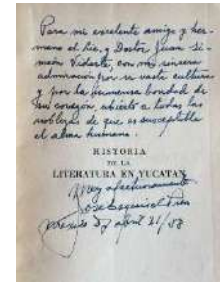 Para mi excelente amigo y her-
mano el Lic. y Doctor Juan Si-
meón Vidarte, con mi sincera
admiración por su vasta cultura
y por la inmensa bondad de
su corazón, abierto a todas las
noblezas de que es susceptible
el alma humana.
HISTORIA
DE LA
LITERATURA EN YUCATAN
Muy afectuosamente
José Esquivel Pren
México DF abril 21/58